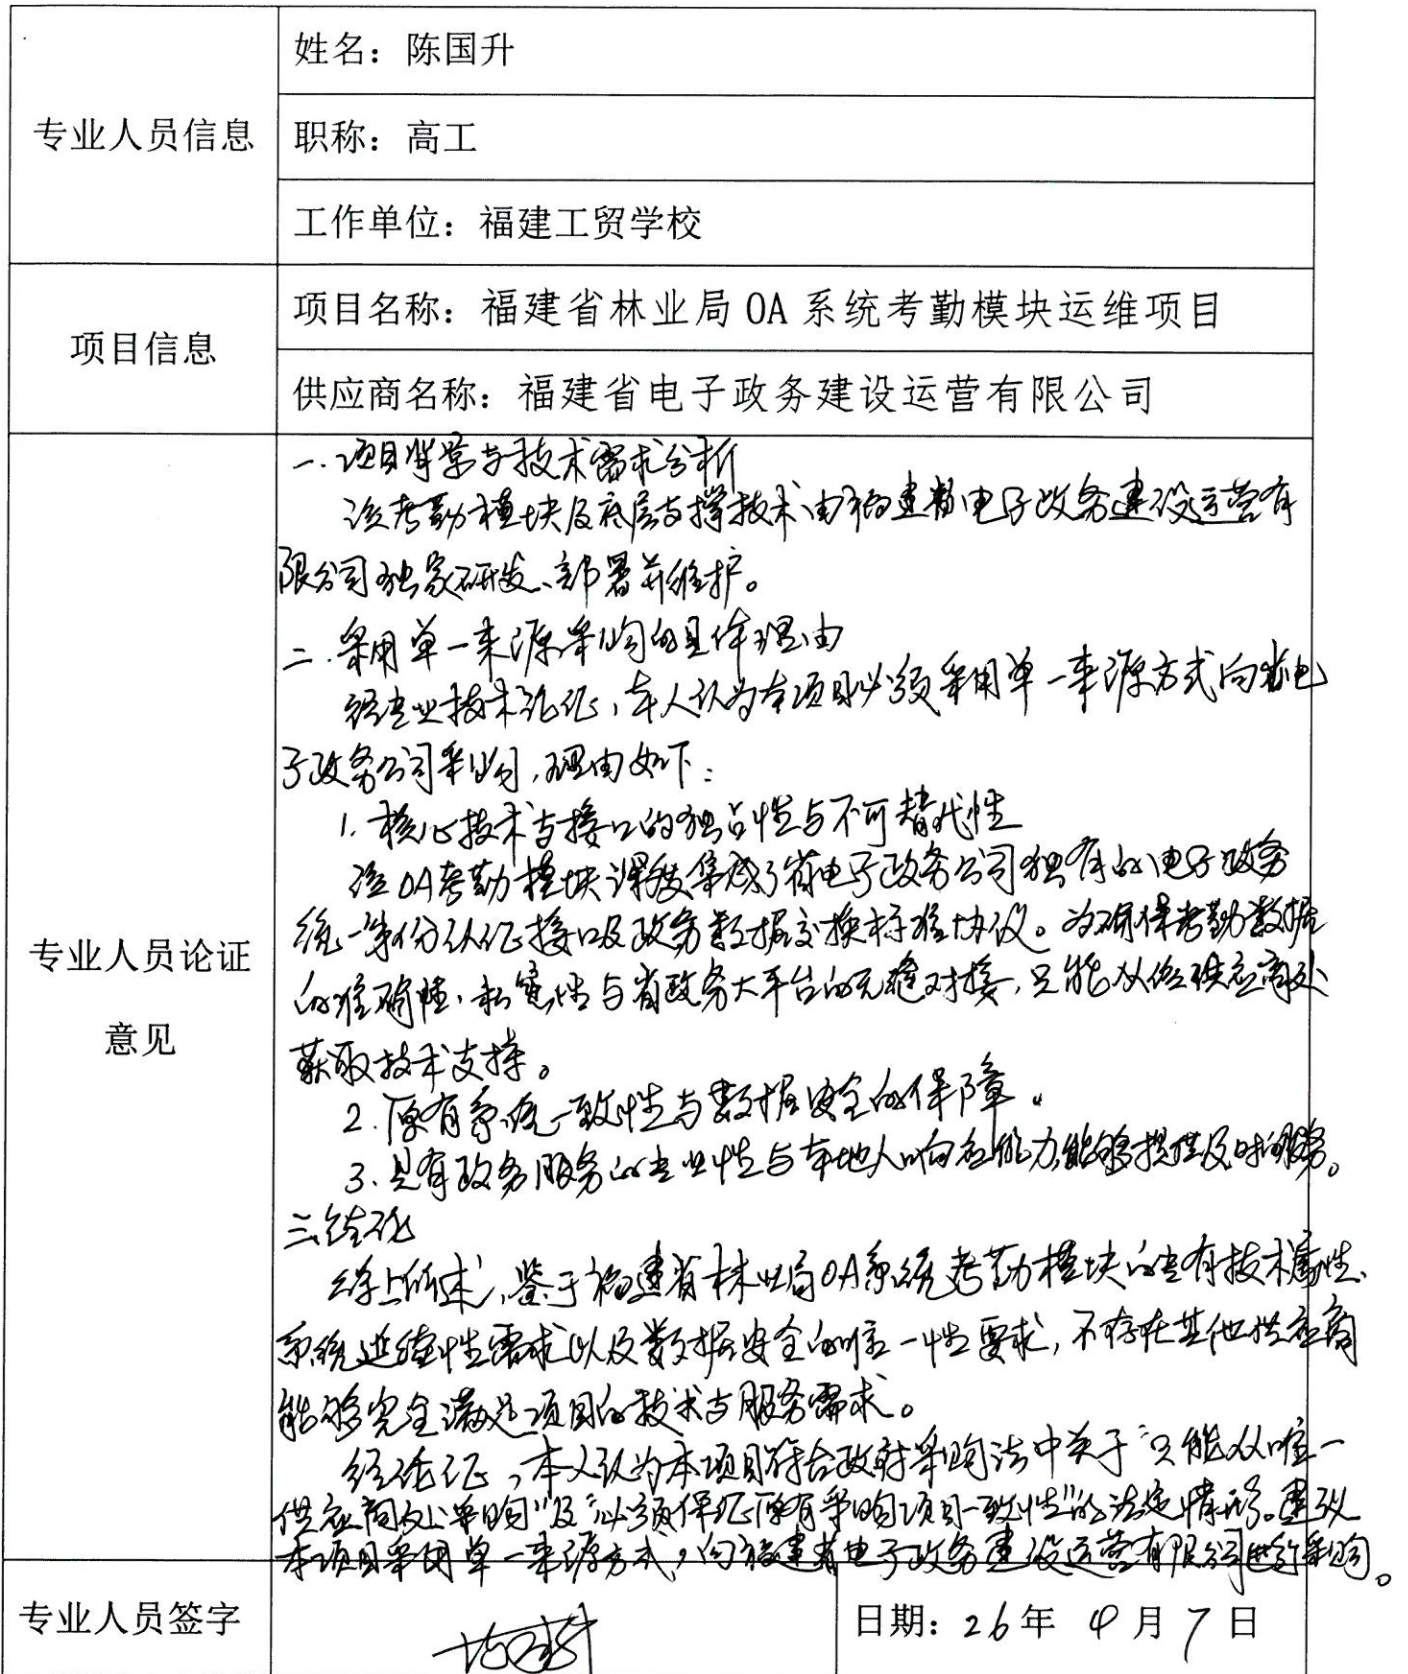 专业人员信息
姓名：陈国升
职称：高工
工作单位：福建工贸学校
项目信息
项目名称：福建省林业局 OA 系统考勤模块运维项目
供应商名称：福建省电子政务建设运营有限公司
专业人员论证
意见
一.项目背景与技术需求分析
该考勤模块及底层支撑技术由福建省电子政务建设运营有
限公司独家研发、部署并维护。
二.采用单一来源采购的具体理由
经专业技术论证，本人认为本项目必须采用单一来源方式向省电
子政务公司采购，理由如下：
1.核心技术与接口的独占性与不可替代性
该OA考勤模块深度集成了省电子政务公司独有的电子政务
统一身份认证接口及政务数据交换标准协议。为确保考勤数据
的准确性、私密性与省政务大平台的无缝对接，只能从该供应商处
获取技术支持。
2.原有系统一致性与数据安全的保障。
3.具有政务服务的专业性与本地人响应能力，能够提供及时的服务。
三.结论
综上所述，鉴于福建省林业局OA系统考勤模块的专有技术属性、
系统延续性需求以及数据安全的唯一性要求，不存在其他供应商
能够完全满足项目的技术与服务需求。
经论证，本人认为本项目符合政府采购法中关于“只能从唯一
供应商处采购”及“必须保证原有采购项目一致性”的法定情形。建议
本项目采用单一来源方式，向福建省电子政务建设运营有限公司进行采购。
专业人员签字
陈国升
日期：26年 4月7日